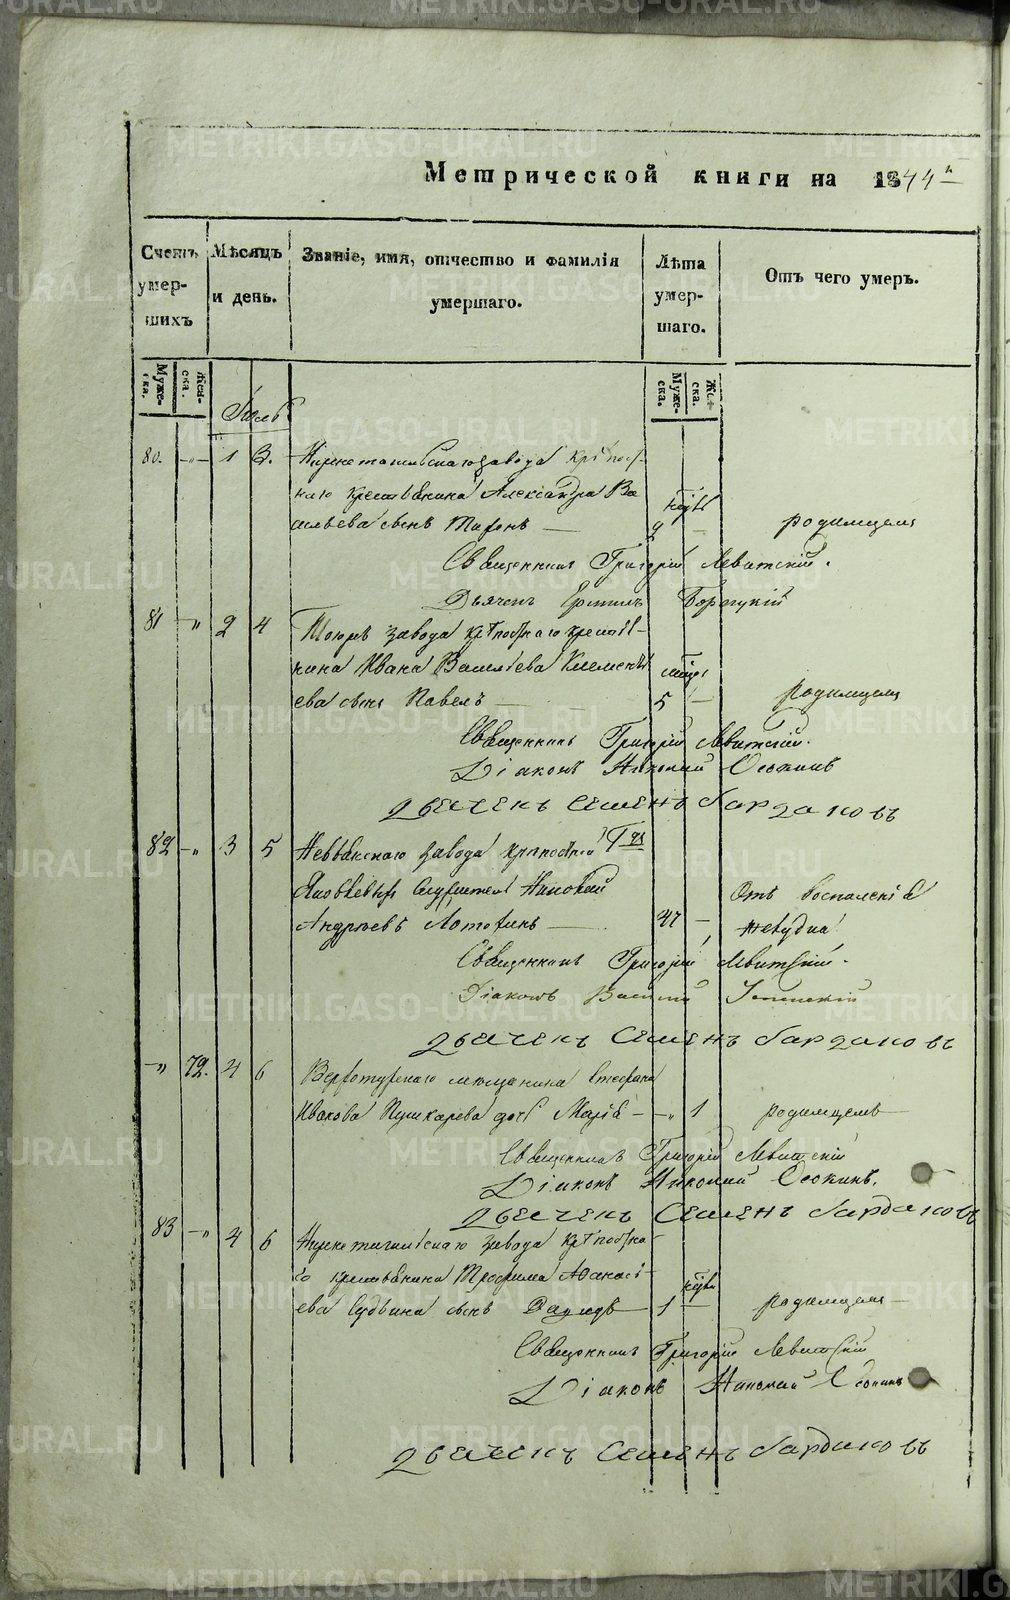 Метрической книги на 1844й
Счетъ умершихъ
Мѣсяцъ и день.
Званіе, имя, отчество и фамилія умершаго.
Лѣта умершаго.
Отъ чего умеръ.
Мужеска.
Женска.
Мужеска.
Женска.
80. -„- 1 3. Нижнетагильскаго завода крѣпост-
наго крестьянина Александра Ва
сильева сынъ
родимцемъ
Священникъ Григорій Левитскій.
Дьячекъ
81 -„ 2 4 завода крѣпостнаго крестья-
нина Ивана Васильева Клементь
ева сынъ Павелъ — 5 — родимцемъ
Священникъ Григорій Левитскій.
Діаконъ Николай Осокинъ
Дьячекъ Семенъ
82 -„ 3 5 Невьянскаго завода крѣпостной Гг
Яковлевыхъ служитель
Андреевъ — 47 — Отъ воспаленія
желудка
Священникъ Григорій Левитскій.
Діаконъ Василій
Дьячекъ Семенъ
-„ 72. 4 6 Верхотурскаго мѣщанина Стефана
Иванова Пушкарева дочь Марія — -„ 1 родимцемъ
Священникъ Григорій Левитскій
Діаконъ Николай Осокинъ.
Дьячекъ Семенъ
83 -„ 4 6 Нижнетагильскаго завода крѣпостна-
го крестьянина Трофима Аѳанась-
ева сынъ Давидъ — 1 — родимцемъ
Священникъ Григорій Левитскій
Діаконъ Николай Осокинъ
Дьячекъ Семенъ
METRIKI.GASO-URAL.RU